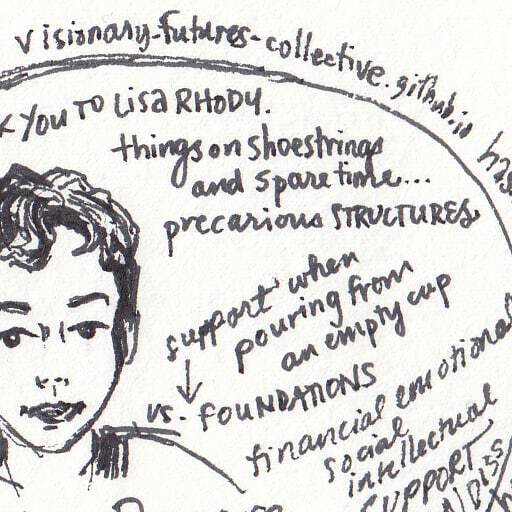 visionary-futures-collective.github.io
YOU TO LISA RHODY.
things on shoestrings
and spare time...
precarious STRUCTURES
support when
pouring from
an empty cup
vs. FOUNDATIONS
financial emotional
social
intellectual
SUPPORT